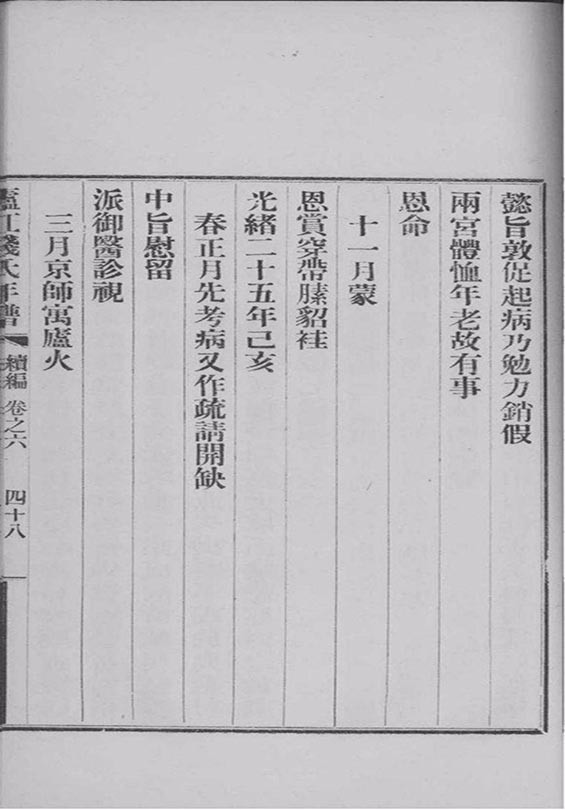 懿旨敦促起病乃勉力銷假
兩宮體恤年老故有事
恩命
十一月蒙
恩賞穿帶膆貂褂
光緒二十五年己亥
春正月先考病又作疏請開缺
中旨慰留
派御醫診視
三月京師寓廬火
廬江錢氏年譜 續編 卷之六 四十八